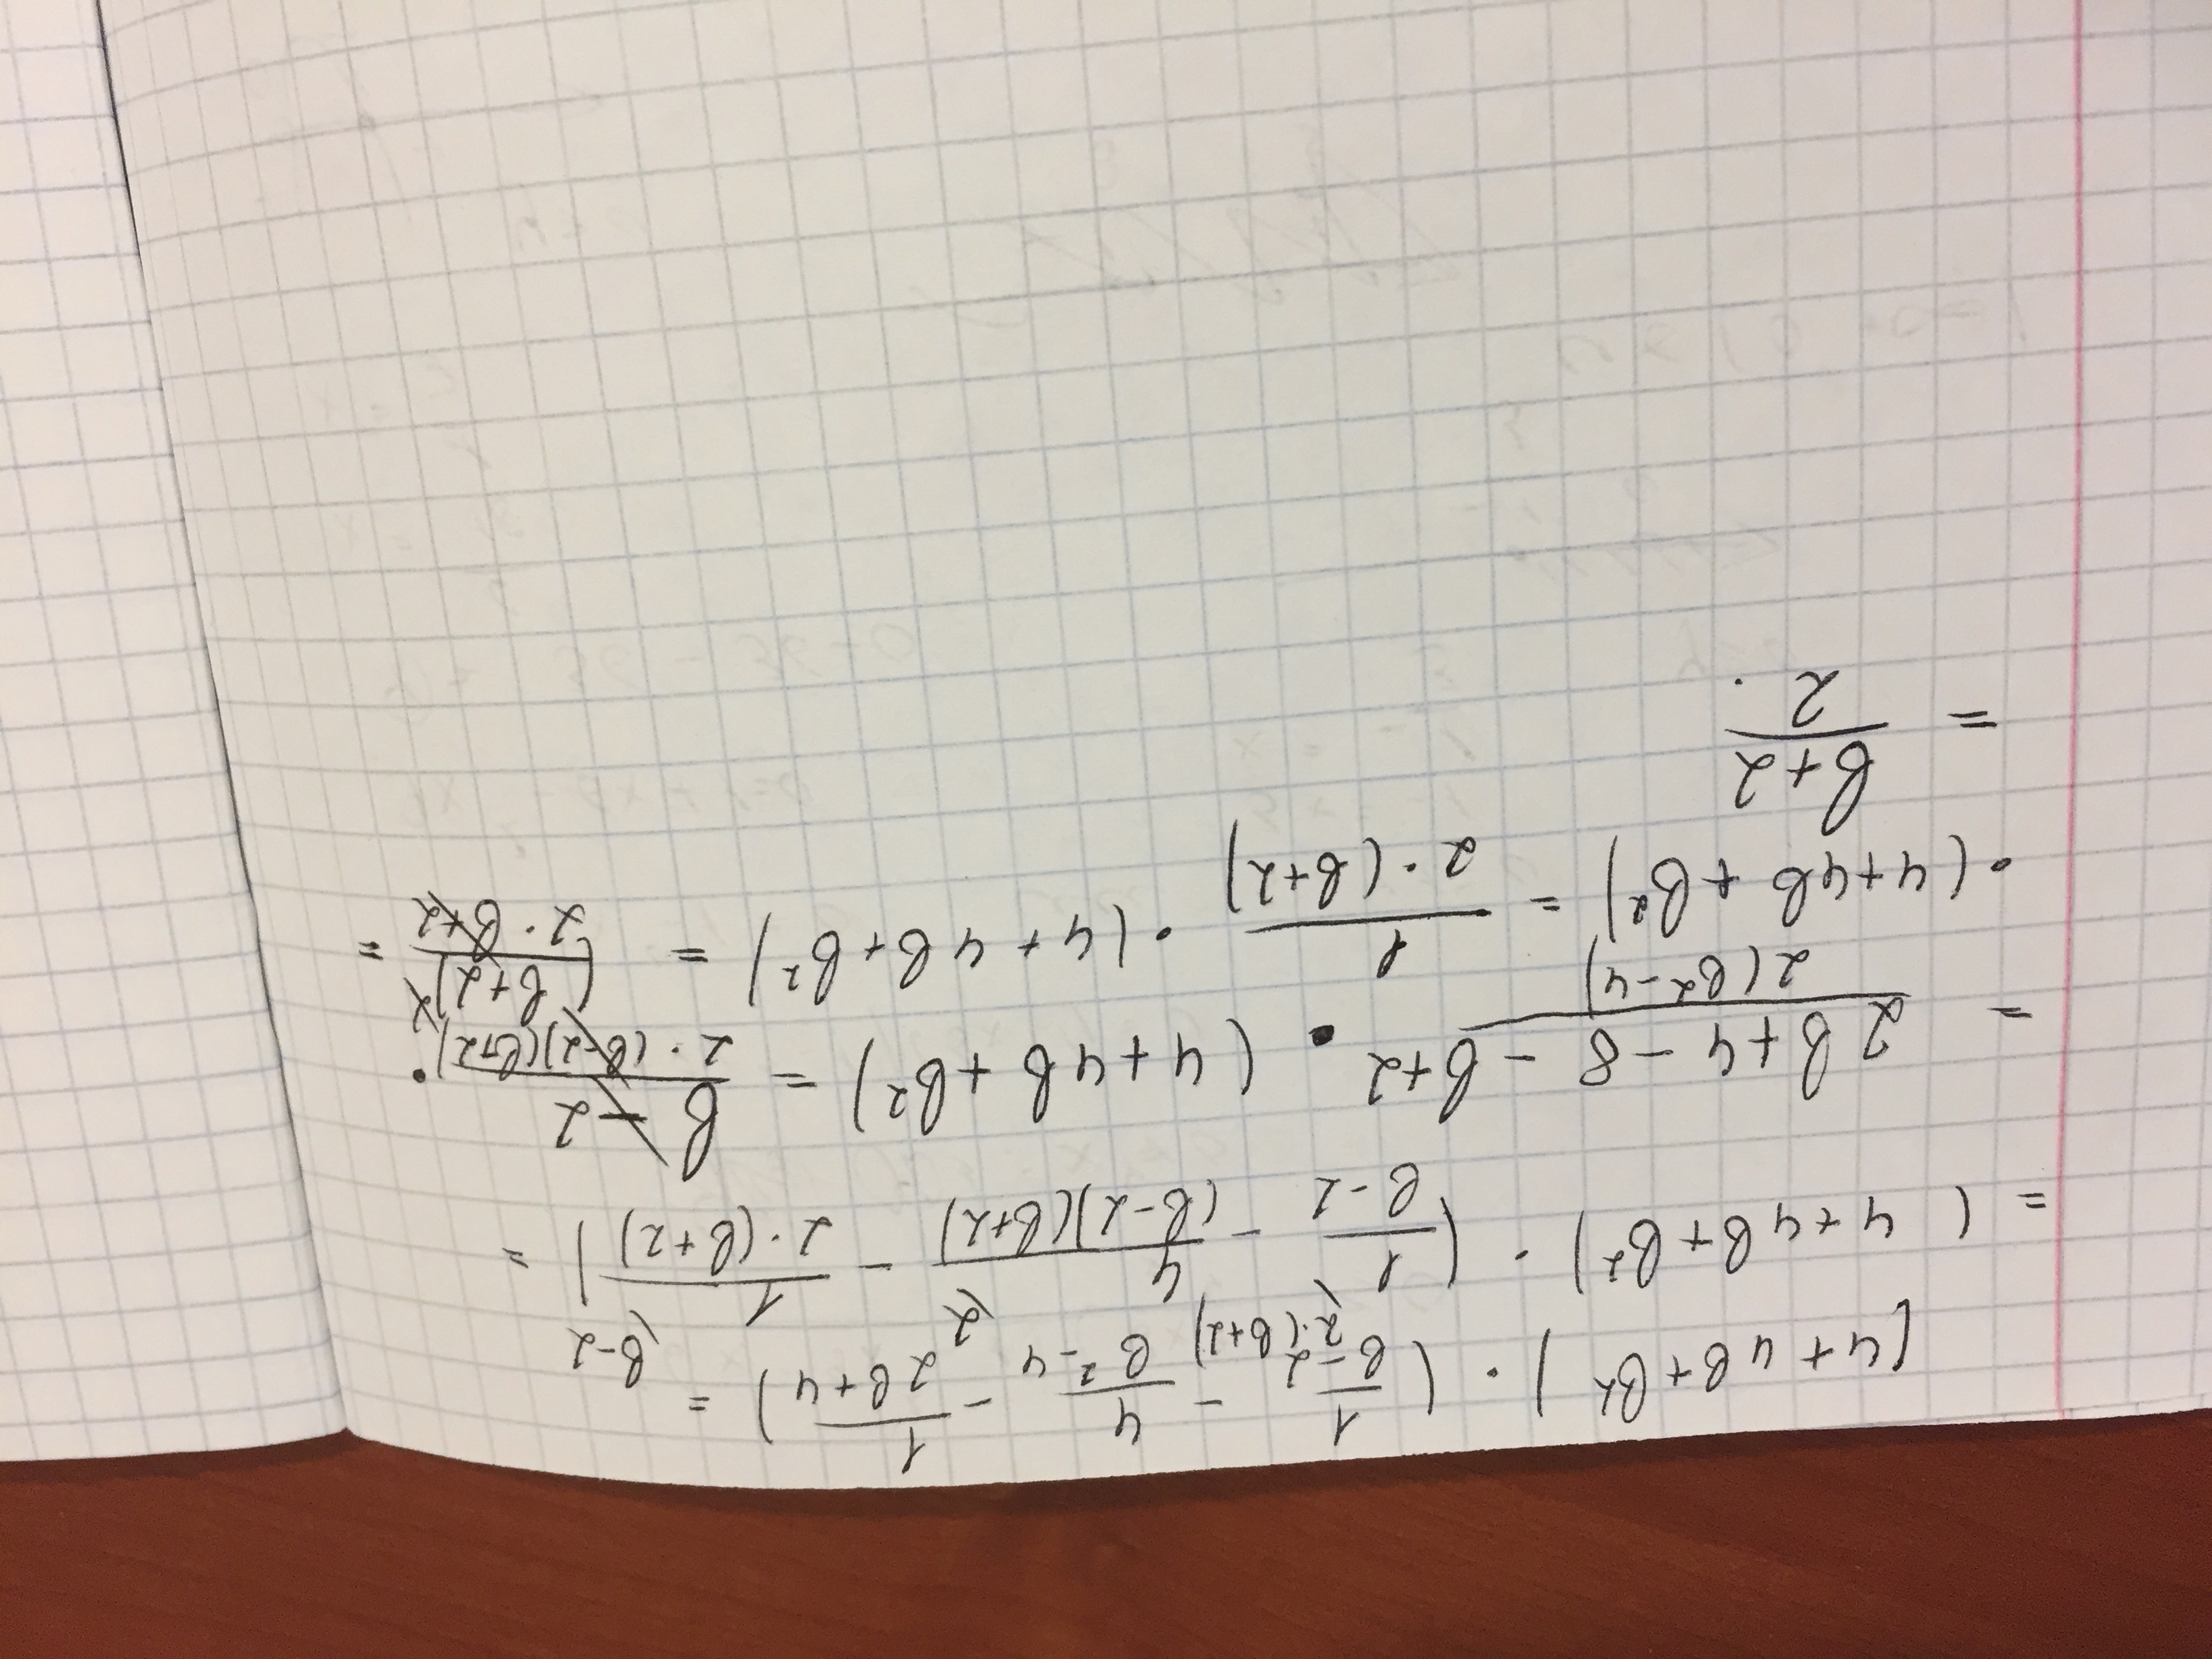 (4+4b+b²) · (1/(b-2) - 4/(b²-4) - 1/(2b+4)) =
= (4+4b+b²) · (1/(b-2) (2·(b+2) - 4/((b-2)(b+2)) (2 - 1/(2·(b+2)) (b-2) =
= (2b+4-8-b+2)/(2(b²-4)) · (4+4b+b²) = (b-2)/(2·(b-2)(b+2)) ·
· (4+4b+b²) = 1/(2·(b+2)) · (4+4b+b²) = (b+2)²/(2·b+2) =
= (b+2)/2.